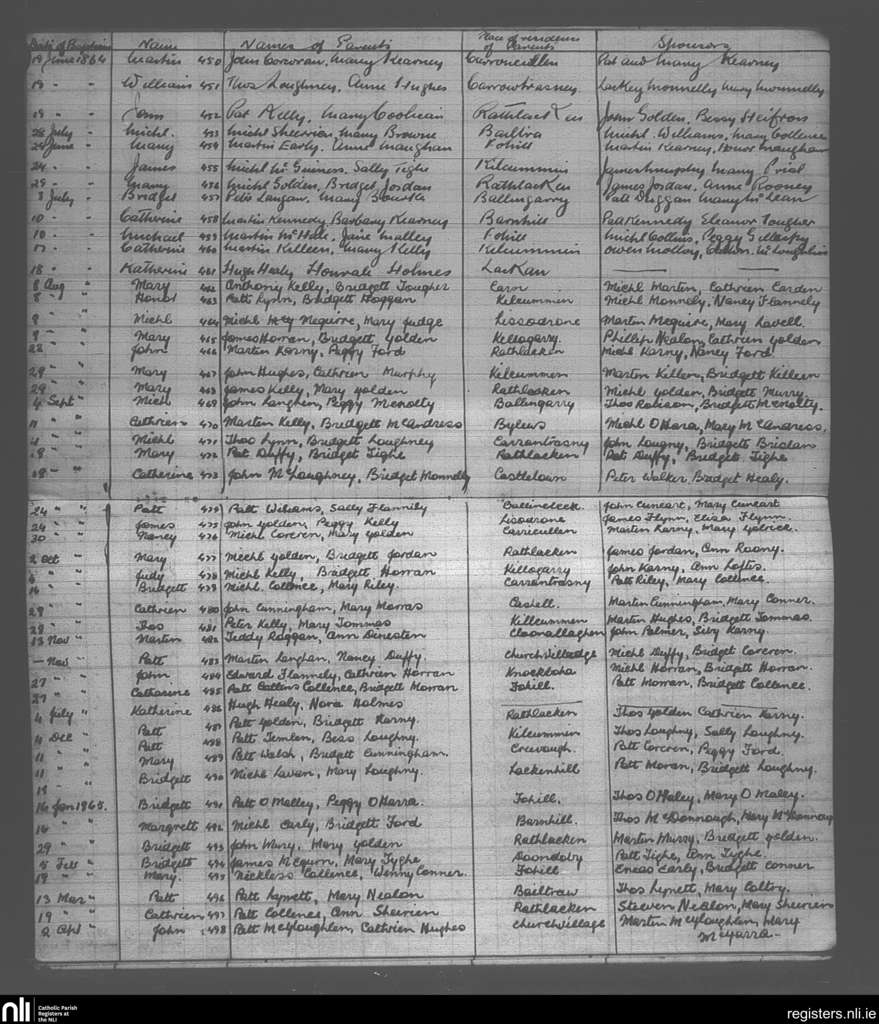 Date of Baptism Name Names of Parents Place of residence of Parents Sponsors
19 June 1864 Martin 450 John Corcoran, Mary Kearney Carrowcullen Pat and Mary Kearney
19 " " William 451 Thos Loughney, Anne Hughes Carrowtrasney Lackey Monnelly Mary Monnelly
19 " " John 452 Pat Kelly, Mary Rathlacken John Golden, Bessy Heifron
28 July " Michl. 453 Michl Sheerian, Mary Browne Bailtra Michl. Williams, Mary Collence
24 June " Mary 454 Martin Early, Anne Maughan Fohill Martin Kearney, Honor Maughan
24 " " James 455 Michl Mc Guiness, Sally Tighe Kilcummin James Murphy Mary Prial
29 " " Mary 456 Michl Golden, Bridget Jordan Rathlacken James Jordan, Anne Rooney
3 July " Bridget 457 Peter Langan, Mary Bourke Ballingarry Patt Duggan Mary Mc Lean
10 " " Catherine 458 Martin Kennedy, Barbary Kearney Barnhill Pat Kennedy Eleanor Tougher
10 " " Michael 459 Martin Mc Hale, Jane Malley Fohill Michl Collins, Peggy Gillespy
17 " " Catherine 460 Martin Killeen, Mary Kelly Kilcummin Owen Molloy, Mc Loughlin
18 " " Katherine 461 Hugh Healy Honorah Holmes Lackan — —
8 Aug " Mary 462 Anthony Kelly, Bridgett Tougher Carn Michl Martin, Cathrien Carden
8 " " Honor 463 Patt Lynn, Bridgett Hoggan Kilcummen Michl Monnely, Nancy Flannely
8 " " Michl 464 Michl Mcy Meguire, Mary Judge Lissodrone Martin Meguire, Mary Lavell.
9 " " Mary 465 James Horran, Bridgett Golden Kellogarry. Phillip Nealon, Cathrien Golden
22 " " John 466 Martin Karny, Peggy Ford Rathlacken Michl Karny, Nancy Ford
29 " " Mary 467 John Hughes, Cathrien Murphy Kelcummen Martin Killen, Bridgett Killeen
29 " " Mary 468 James Kelly, Mary Golden Rathlacken Michl Golden, Bridgett Murry
4 Sept " Michl 469 John Langhen, Peggy Mcnolty Ballingarry Thos Robison, Bridgett Mcnolty.
11 " " Cathrien 470 Marten Kelly, Bredgett McAndress Bylews Michl OHara, Mary McAndress,
11 " " Michl 471 Thos Lynn, Bridgett Loughney Carrantrasny John Lougny, Bridgett Brislan
18 " " Mary 472 Pat Duffy, Bridget Tighe Rathlacken Pat Duffy, Bridget Tighe
18 " " Catherine 473 John McLoughney, Bridget Monnelly Castletown Peter Walker Bridget Healy.
24 " " Patt 474 Patt Wiliams, Sally Flannily Ballincleck. John Cuneart, Mary Cuneart
24 " " James 475 John Golden, Peggy Kelly Lissdrone James Flynn, Elisa Flynn.
30 " " Nancy 476 Michl Corcren, Mary Golden Carricullen Marten Karny, Mary
2 Oct " Mary 477 Miechl Golden, Bredgett Jordan Rathlacken James Jordan, Ann Roony.
6 " " Judy 478 Michl Kelly, Bradgett Horran Killogarry John Karny, Ann Loftis.
16 " " Bridgett 479 Michl. Collence, Mary Riley. Carrantrasny Patt Riley, Mary Collence.
28 " " Cathrien 480 John Cunningham, Mary Morras Cashell. Martin Cunningham, Mary Conner.
29 " " Thos 481 Peter Kelly, Mary Tommas Killcummen Marten Hughes, Bridgett Tommas.
13 Nov " Martin 482 Teddy Roggan, Ann Dinesten Cloonallaghen John Palmer, Siby Karny.
— Nov " Patt 483 Marten Langhan, Nancy Duffy. Churchvilledge Michl Duffy, Bridget Corcren.
27 " " John 484 Edward Flannely, Cathrien Horran Knockboha Michl Horran, Bridgett Horran.
27 " " Catharine 485 Patt Collins Collence, Bridgett Morran Fohill. Patt Morran, Bridgett Collence.
4 July " Katherine 486 Hugh Healy, Nora Holmes
4 Dec " Patt 487 Patt Golden, Bridgett Karny. Rathlacken Thos Golden Cathrien Karny.
11 " " Patt 488 Patt Temlen, Bess Loughny. Kilcummen Thos Loughny, Sally Loughny.
11 " " Mary 489 Patt Walsh, Bridgett Cunningham. Creevough. Patt Corcren, Peggy Ford.
18 " " Bridgett 490 Michl Lavan, Mary Loughny. Lackenhill Patt Moran, Bridgett Loughny.
16 Jan 1865. Bridgett 491 Patt O Malley, Peggy OHarra. Fohill. Thos OMaley, Mary O Maley.
16 " Margrett 492 Michl Early, Bridgett Ford Barnhill. Thos McDonnough, Mary McDonnough
29 " Bridgett 493 John Mury, Mary Golden Rathlacken Marten Murry, Bridgett Golden.
5 Feb " Bridgett 494 James McGurn, Mary Tyghe Doondoby Patt Tighe, Ann Tyghe.
19 " " Mary. 495 Nickless Collence, Winny Conner. Fohill Eneas Early, Bridgett Conner
13 Mar " Patt 496 Patt Lynett, Mary Nealon Bailtraw Thos Lynett, Mary Coltry.
19 " " Cathrien 497 Patt Collence, Ann Sheerien Rathlacken Steeven Nealon, Mary Sheerien
2 Apl " John 498 Patt McGloughlen, Cathrien Hughes Churchvillage Marten McGloughlen, Mary
McGarra.
nli Catholic Parish Registers at the NLI
registers.nli.ie